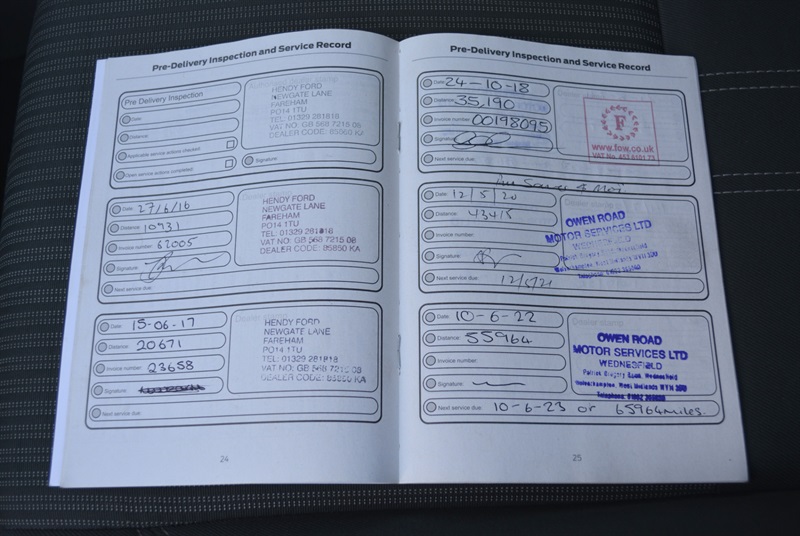 Pre-Delivery Inspection and Service Record
Pre Delivery Inspection
Date:
Distance:
Applicable service actions checked:
Open service actions completed:
HENDY FORD
NEWGATE LANE
FAREHAM
PO14 1TU
TEL: 01329 281818
VAT NO: GB 568 7215 08
DEALER CODE: 85850 KA
Signature:
Date: 27/6/16
Distance: 10931
Invoice number: 62005
Signature:
Next service due:
HENDY FORD
NEWGATE LANE
FAREHAM
PO14 1TU
TEL: 01329 281818
VAT NO: GB 568 7215 08
DEALER CODE: 85850 KA
Date: 15-06-17
Distance: 20671
Invoice number: 23658
Signature:
Next service due:
HENDY FORD
NEWGATE LANE
FAREHAM
PO14 1TU
TEL: 01329 281818
VAT NO: GB 568 7215 08
DEALER CODE: 85850 KA
24
Pre-Delivery Inspection and Service Record
Date: 24-10-18
Distance: 35,190
Invoice number: 00198095
Signature:
Next service due:
F
www.fow.co.uk
VAT No.
Date: 12/5/20
Distance: 43415
Invoice number:
Signature:
Next service due: 12/5/21
OWEN ROAD
MOTOR SERVICES LTD
WEDNESFIELD
Date: 10-6-22
Distance: 55964
Invoice number:
Signature:
Next service due: 10-6-23 or 65964 miles.
OWEN ROAD
MOTOR SERVICES LTD
WEDNESFIELD
Wolverhampton, West Midlands
Telephone:
25